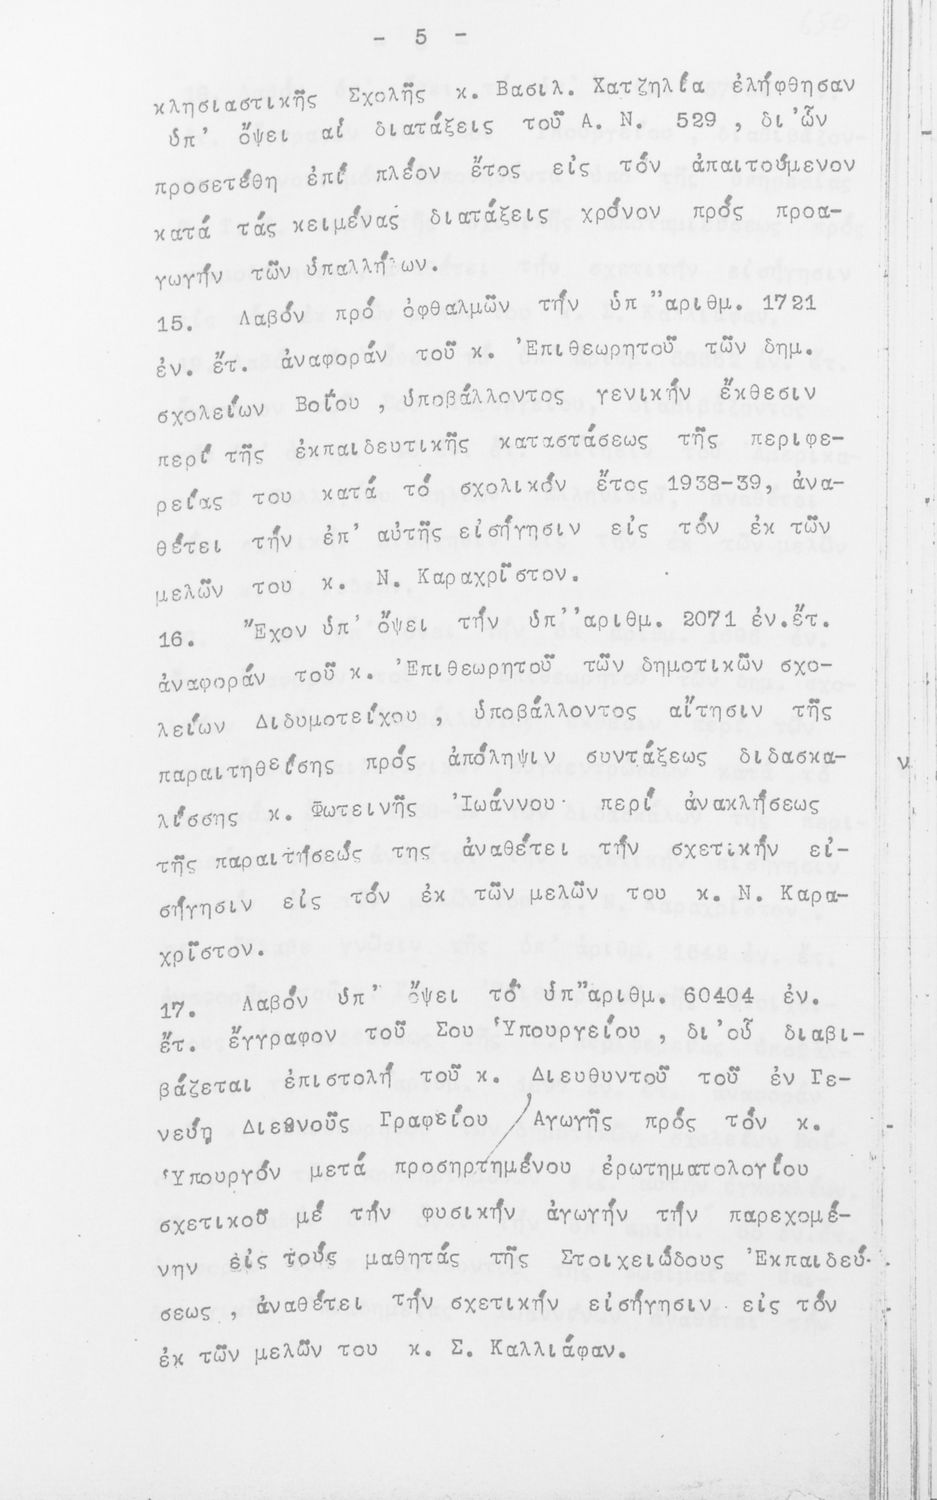 - 5 -
κλησιαστικῆς Σχολῆς κ. Βασιλ. Χατζηλία ἐλήφθησαν
ὑπ' ὄψει αἱ διατάξεις τοῦ Α. Ν. 529 , δι'ὧν
προσετέθη ἐπί πλέον ἔτος εἰς τόν ἀπαιτούμενον
κατά τάς κειμένας διατάξεις χρόνον πρός προα-
γωγήν τῶν ὑπαλλήλων.
15. Λαβόν πρό ὀφθαλμῶν τήν ὑπ "αριθμ. 1721
ἐν. ἔτ. ἀναφοράν τοῦ κ. Ἐπιθεωρητοῦ τῶν δημ.
σχολείων Βοΐου , ὑποβάλλοντος γενικήν ἔκθεσιν
περί τῆς ἐκπαιδευτικῆς καταστάσεως τῆς περιφε-
ρείας του κατά τό σχολικόν ἔτος 1938-39, ἀνα-
θέτει τήν ἐπ' αὐτῆς εἰσήγησιν εἰς τόν ἐκ τῶν
μελῶν του κ. Ν. Καραχρῖστον.
16. Ἔχον ὑπ' ὄψει τήν ὑπ''αριθμ. 2071 ἐν.ἔτ.
ἀναφοράν τοῦ κ. Ἐπιθεωρητοῦ τῶν δημοτικῶν σχο-
λείων Διδυμοτείχου , ὑποβάλλοντος αἴτησιν τῆς
παραιτηθείσης πρός ἀπόληψιν συντάξεως διδασκα-
λίσσης κ. Φωτεινῆς Ἰωάννου περί ἀνακλήσεως
τῆς παραιτήσεώς της ἀναθέτει τήν σχετικήν εἰ-
σήγησιν εἰς τόν ἐκ τῶν μελῶν του κ. Ν. Καρα-
χρῖστον.
17. Λαβόν ὑπ' ὄψει τό ὑπ"αριθμ. 60404 ἐν.
ἔτ. ἔγγραφον τοῦ Σου Ὑπουργείου , δι'οὗ διαβι-
βάζεται ἐπιστολή τοῦ κ. Διευθυντοῦ τοῦ ἐν Γε-
νεύῃ Διεθνοῦς Γραφείου / Αγωγῆς πρός τόν κ.
Ὑπουργόν μετά προσηρτημένου ἐρωτηματολογίου
σχετικοῦ μέ τήν φυσικήν ἀγωγήν τήν παρεχομέ-
νην εἰς τούς μαθητάς τῆς Στοιχειώδους Ἐκπαιδεύ-
σεως , ἀναθέτει τήν σχετικήν εἰσήγησιν εἰς τόν
ἐκ τῶν μελῶν του κ. Σ. Καλλιάφαν.